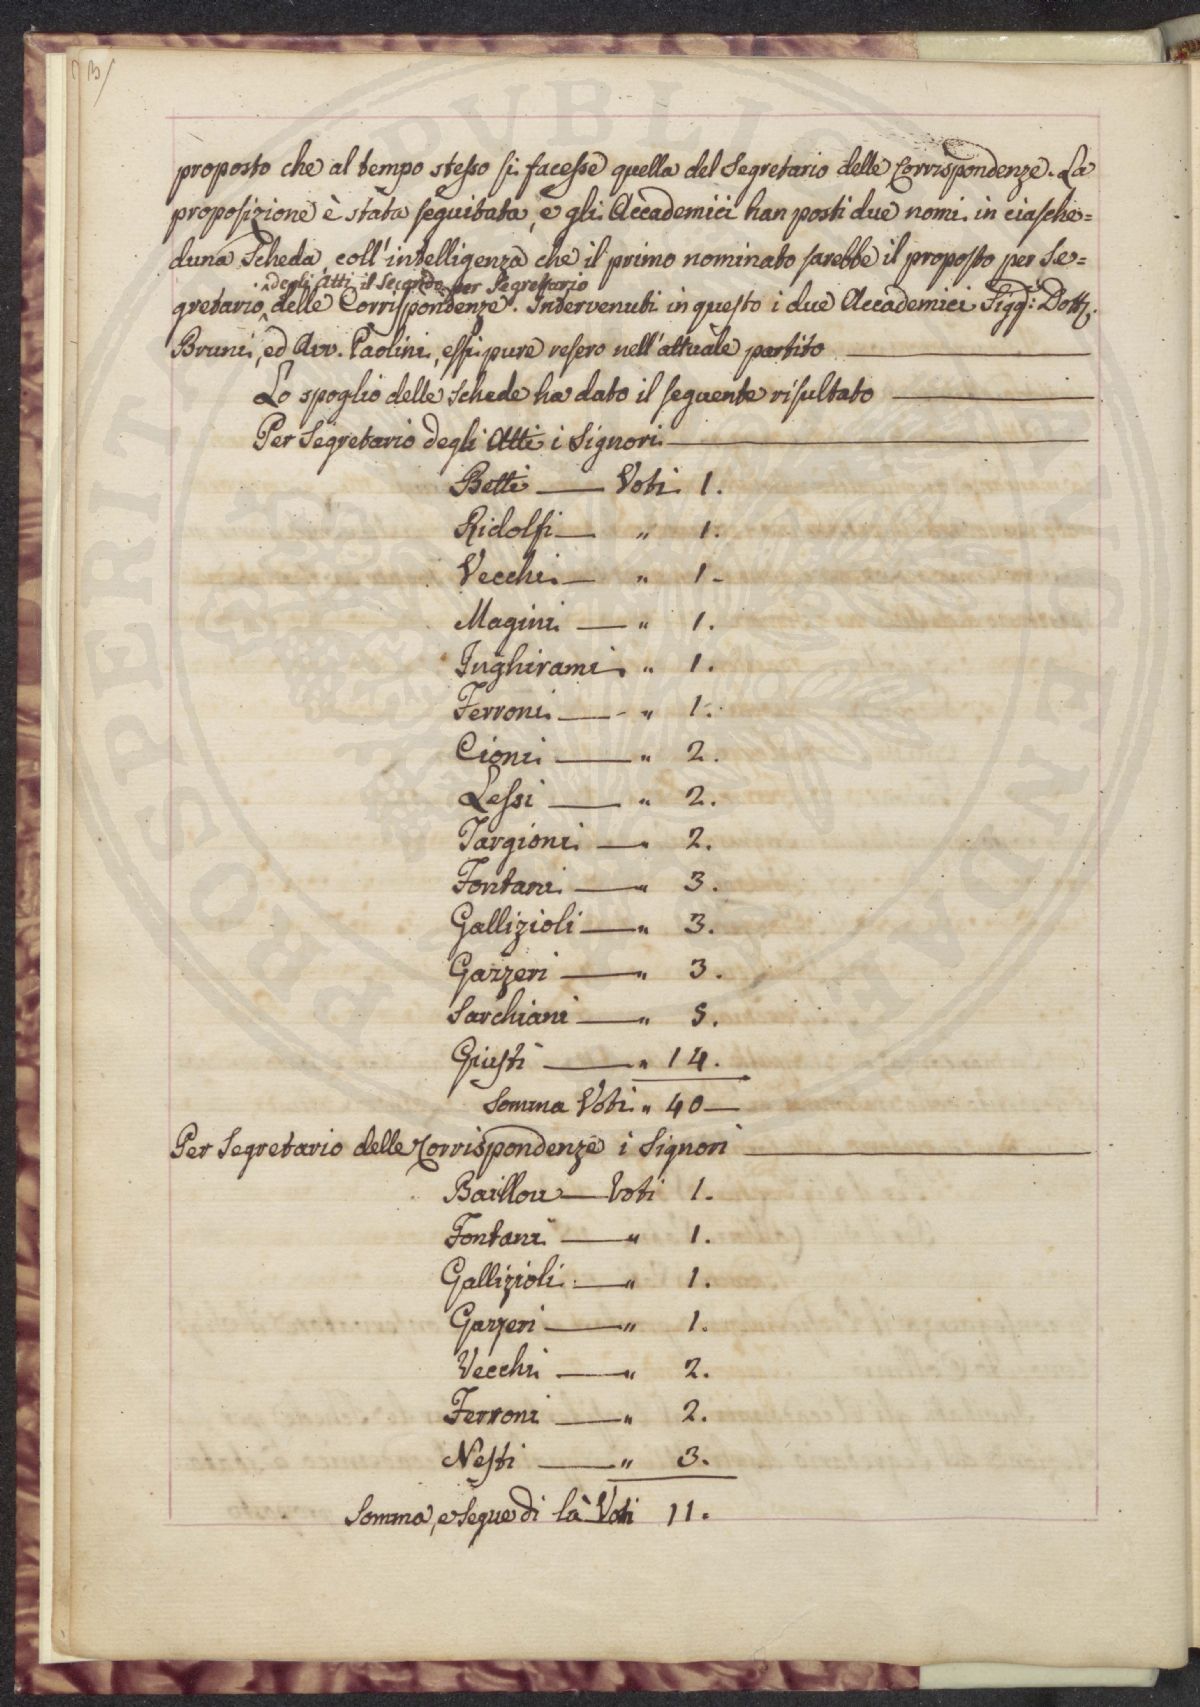 proposto che al tempo stesso si facesse quella del Segretario delle Corrispondenze. La
proposizione è stata seguitata, e gli Accademici han posti due nomi in ciasche=
duna Scheda, coll'intelligenza che il primo nominato sarebbe il proposto per Se=
degli Atti il Secondo per Segretario
gretario, delle Corrispondenze. Intervenuti in questo i due Accademici Sigg.: Dott.
Bruni, ed Avv. Paolini, essi pure resero nell'attuale partito
Lo spoglio delle Schede ha dato il seguente risultato
Per Segretario degli Atti i Signori
Betti — Voti 1.
Ridolfi — " 1.
Vecchi — " 1.
Magini — " 1.
Inghirami " 1.
Ferroni — " 1.
Cioni — " 2.
Lessi — " 2.
Targioni — " 2.
Fontani — " 3.
Gallizioli — " 3.
Gazzeri — " 3.
Sarchiani — " 5.
Giusti — " 14.
Somma Voti " 40 —
Per Segretario delle Corrispondenze i Signori
Baillou — Voti 1.
Fontani — " 1.
Gallizioli — " 1.
Gazzeri — " 1.
Vecchi — " 2.
Ferroni — " 2.
Nesti — " 3.
Somma, e segue di là Voti 11.